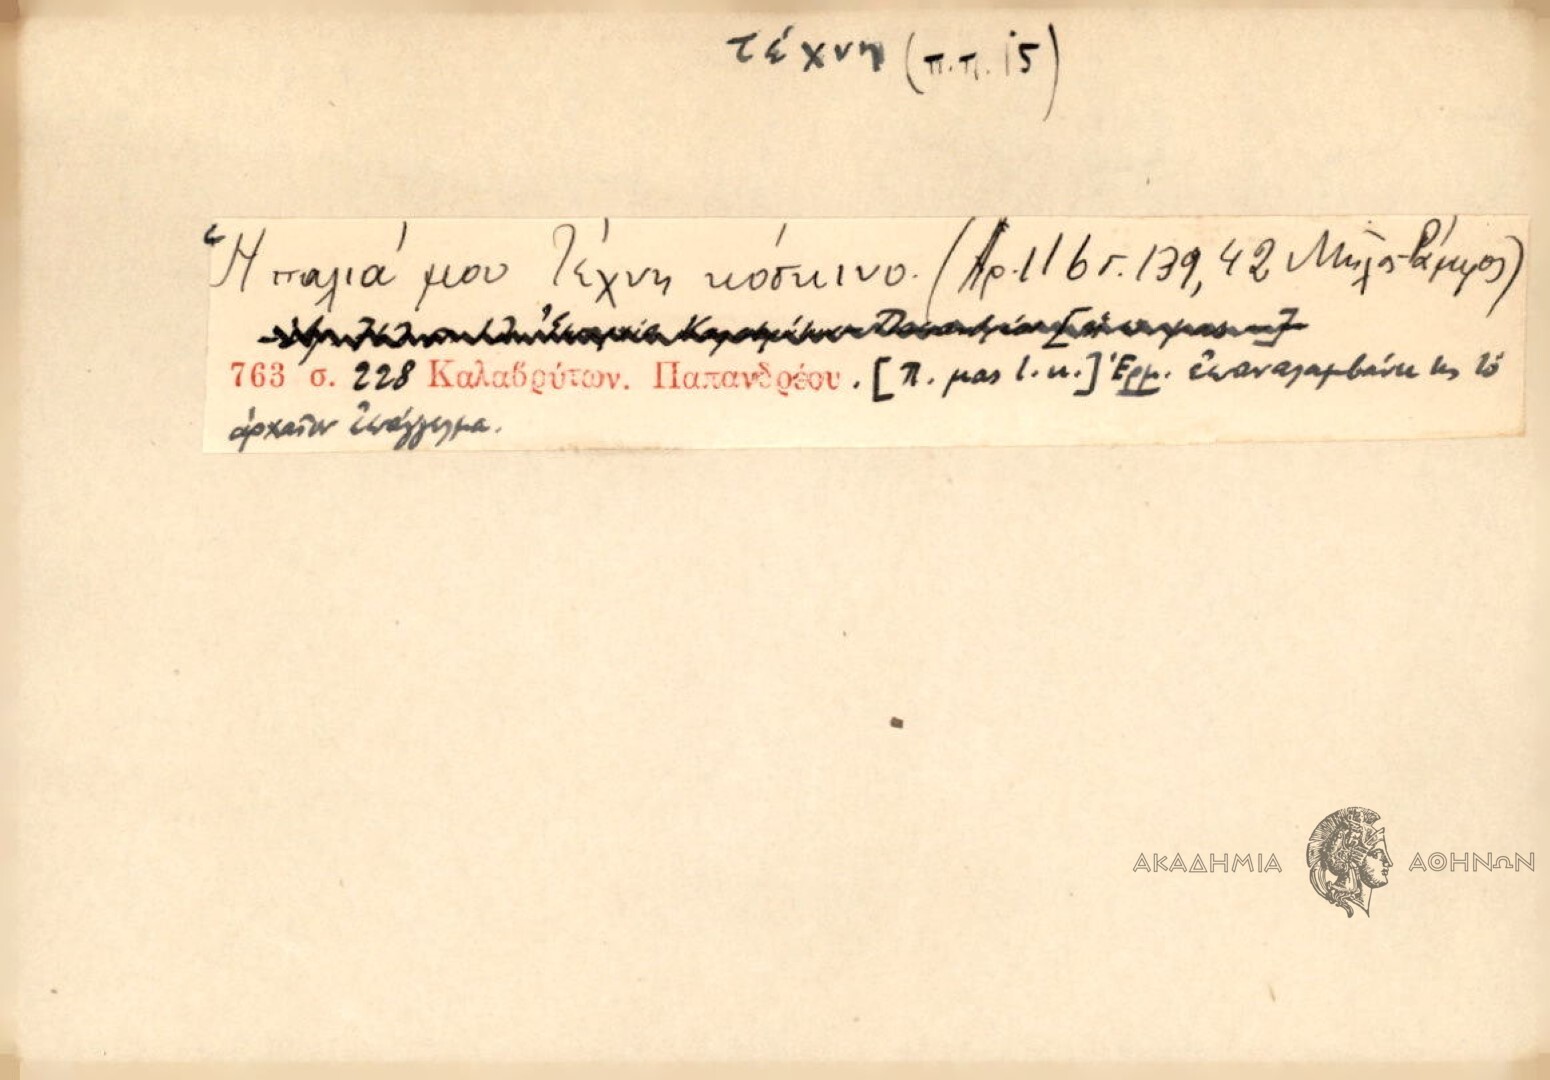 τέχνη (π.π. 15)
Ἡ παλιά μου τέχνη κόσκινο. (Ἀρ. 116 σ. 139, 42 Μῆλος-Ράμφος)
763 σ. 228 Καλαβρύτων. Παπανδρέου. [π. μας τ. κ.] Ἑρμ. ἐπαναλαμβάνει τις τό
ἀρχαῖον ἐπάγγελμα.
ΑΚΑΔΗΜΙΑ ΑΘΗΝΩΝ